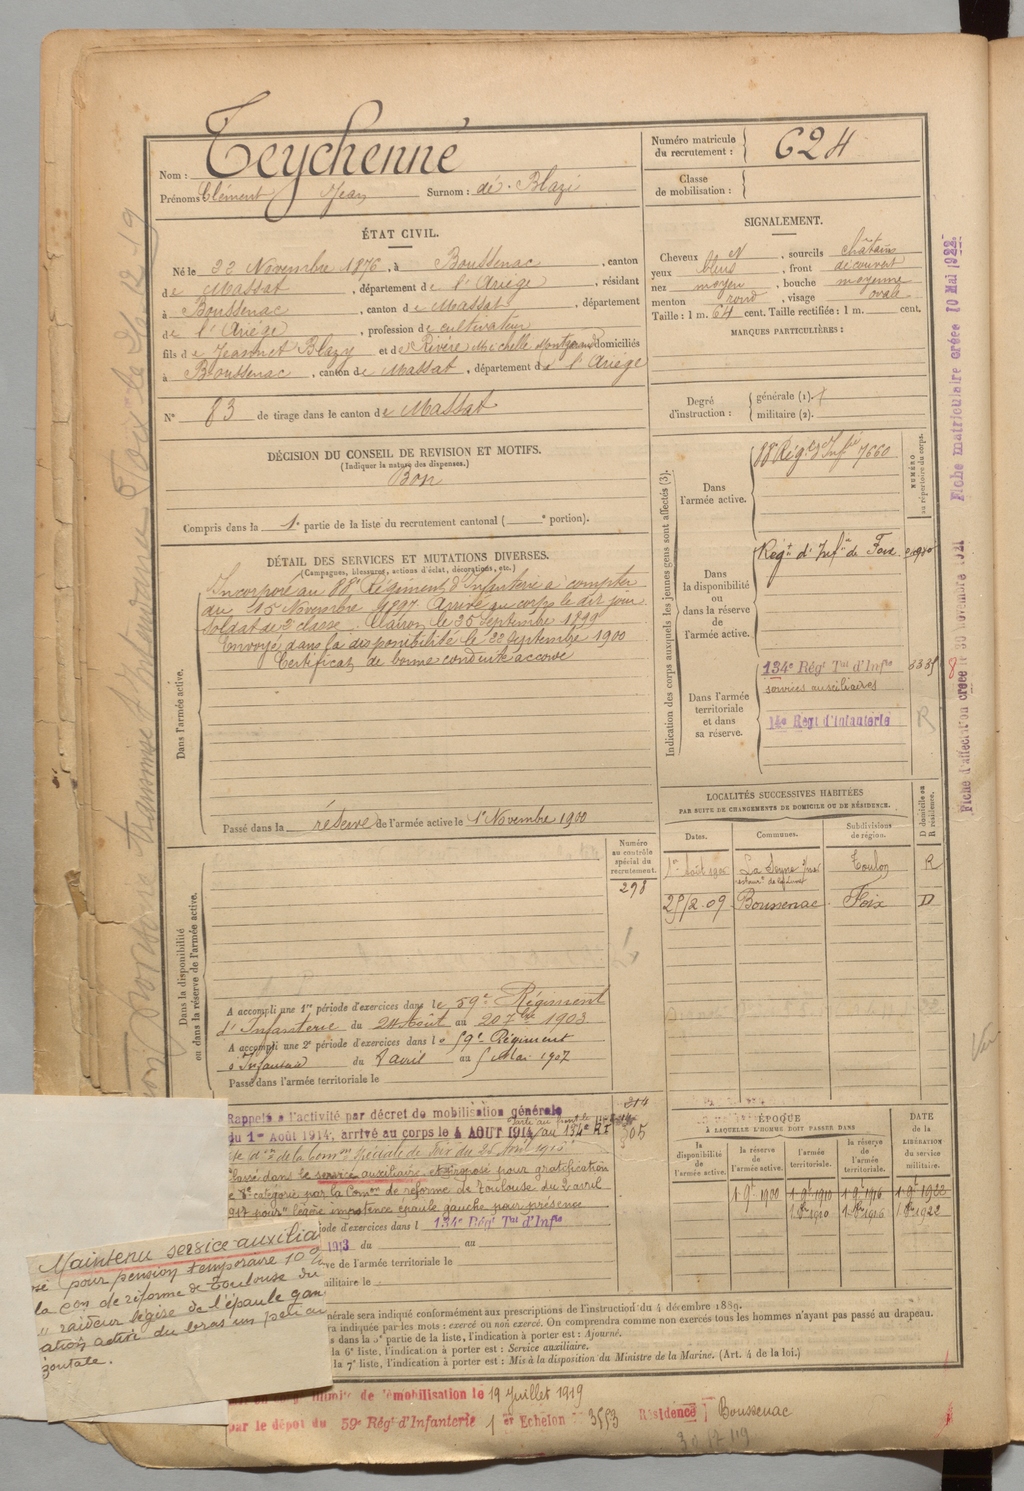 Nom : Teychenné
Prénoms Clément Jean Surnom : dé Blazi
Numéro matricule du recrutement : 624
Classe de mobilisation :
ÉTAT CIVIL.
Né le 22 Novembre 1876, à Boussenac, canton
de Massat, département de l'Ariège, résidant
à Boussenac, canton de Massat, département
de l'Ariège, profession de cultivateur
fils de Jeannet Blazy et de Rivère Michelle domiciliés
à Boussenac, canton de Massat, département de l'Ariège
N° 83 de tirage dans le canton de Massat
SIGNALEMENT.
Cheveux N, sourcils châtains
yeux bleus, front découvert
nez moyen, bouche moyenne
menton rond, visage ovale
Taille : 1 m. 64 cent. Taille rectifiée : 1 m. cent.
MARQUES PARTICULIÈRES :
Degré d'instruction : générale (1).
militaire (2).
DÉCISION DU CONSEIL DE REVISION ET MOTIFS.
(Indiquer la nature des dispenses.)
Bon
Compris dans la 1e partie de la liste du recrutement cantonal ( e portion).
DÉTAIL DES SERVICES ET MUTATIONS DIVERSES.
(Campagnes, blessures, actions d'éclat, décorations, etc.)
Dans l'armée active.
Incorporé au 88e Régiment d'Infanterie à compter
du 15 Novembre 1897 Arrivé au corps le dit jour
soldat de 2e classe. Clairon le 25 Septembre 1899
Envoyé dans la disponibilité le 22 Septembre 1900
Certificat de bonne conduite accordé
Passé dans la réserve de l'armée active le 1er Novembre 1900
Indication des corps auxquels les jeunes gens sont affectés (3).
NUMÉRO au répertoire du corps.
Dans l'armée active.
88 Régt d'Infie 7660
Dans la disponibilité ou dans la réserve de l'armée active.
Régt d'Infie de Foix
Dans l'armée territoriale et dans sa réserve.
134e Régt Tal d'Infie
services auxiliaires
14e Régt d'Infanterie R
LOCALITÉS SUCCESSIVES HABITÉES
PAR SUITE DE CHANGEMENTS DE DOMICILE OU DE RÉSIDENCE.
Dates. Communes. Subdivisions de région. D domicile ou R résidence.
1er août 1906 La Seyne Toulon R
25/2.09 Boussenac Foix D
Dans la disponibilité ou dans la réserve de l'armée active.
Numéro au contrôle spécial du recrutement.
298
A accompli une 1re période d'exercices dans le 59e Régiment
d'Infanterie du 24 Août au 20 7bre 1903
A accompli une 2e période d'exercices dans le 59e Régiment
d'Infanterie du 8 avril au 5 Mai 1907
Passé dans l'armée territoriale le
314
305
Rappelé à l'activité par décret de mobilisation générale
du 1er Août 1914, arrivé au corps le 4 AOUT 1914 au 134e RT
Passé dans le service auxiliaire, et proposé pour gratification
8e catégorie par la Comon de réforme de Toulouse du 2 avril
1917 pour légère impotence épaule gauche
iode d'exercices dans l 134e Régt Tal d'Infie
1913 du au
rve de l'armée territoriale le
ilitaire le
ÉPOQUE
À LAQUELLE L'HOMME DOIT PASSER DANS
DATE de la LIBÉRATION du service militaire.
la disponibilité de l'armée active.
la réserve de l'armée active.
l'armée territoriale.
la réserve de l'armée territoriale.
1 9e 1900 1 9e 1910 1 9e 1916 1 9e 1922
nérale sera indiqué conformément aux prescriptions de l'instruction du 4 décembre 1889.
ra indiquée par les mots : exercé ou non exercé. On comprendra comme non exercés tous les hommes n'ayant pas passé au drapeau.
s dans la 5e partie de la liste, l'indication à porter est : Ajourné.
la 6e liste, l'indication à porter est : Service auxiliaire.
la 7e liste, l'indication à porter est : Mis à la disposition du Ministre de la Marine. (Art. 4 de la loi.)
Maintenu service auxilia
sé pour pension temporaire 10%
la Con de réforme de Toulouse du
raideur légère de l'épaule gau
ation active du bras un peu au
izontale.
illimité de démobilisation le 19 Juillet 1919
par le dépôt du 59e Régt d'Infanterie 1er Echelon 3553 Résidence Boussenac
Fiche d'affectation créée le 30 novembre 1921
Fiche matriculaire créée 10 Mai 1922